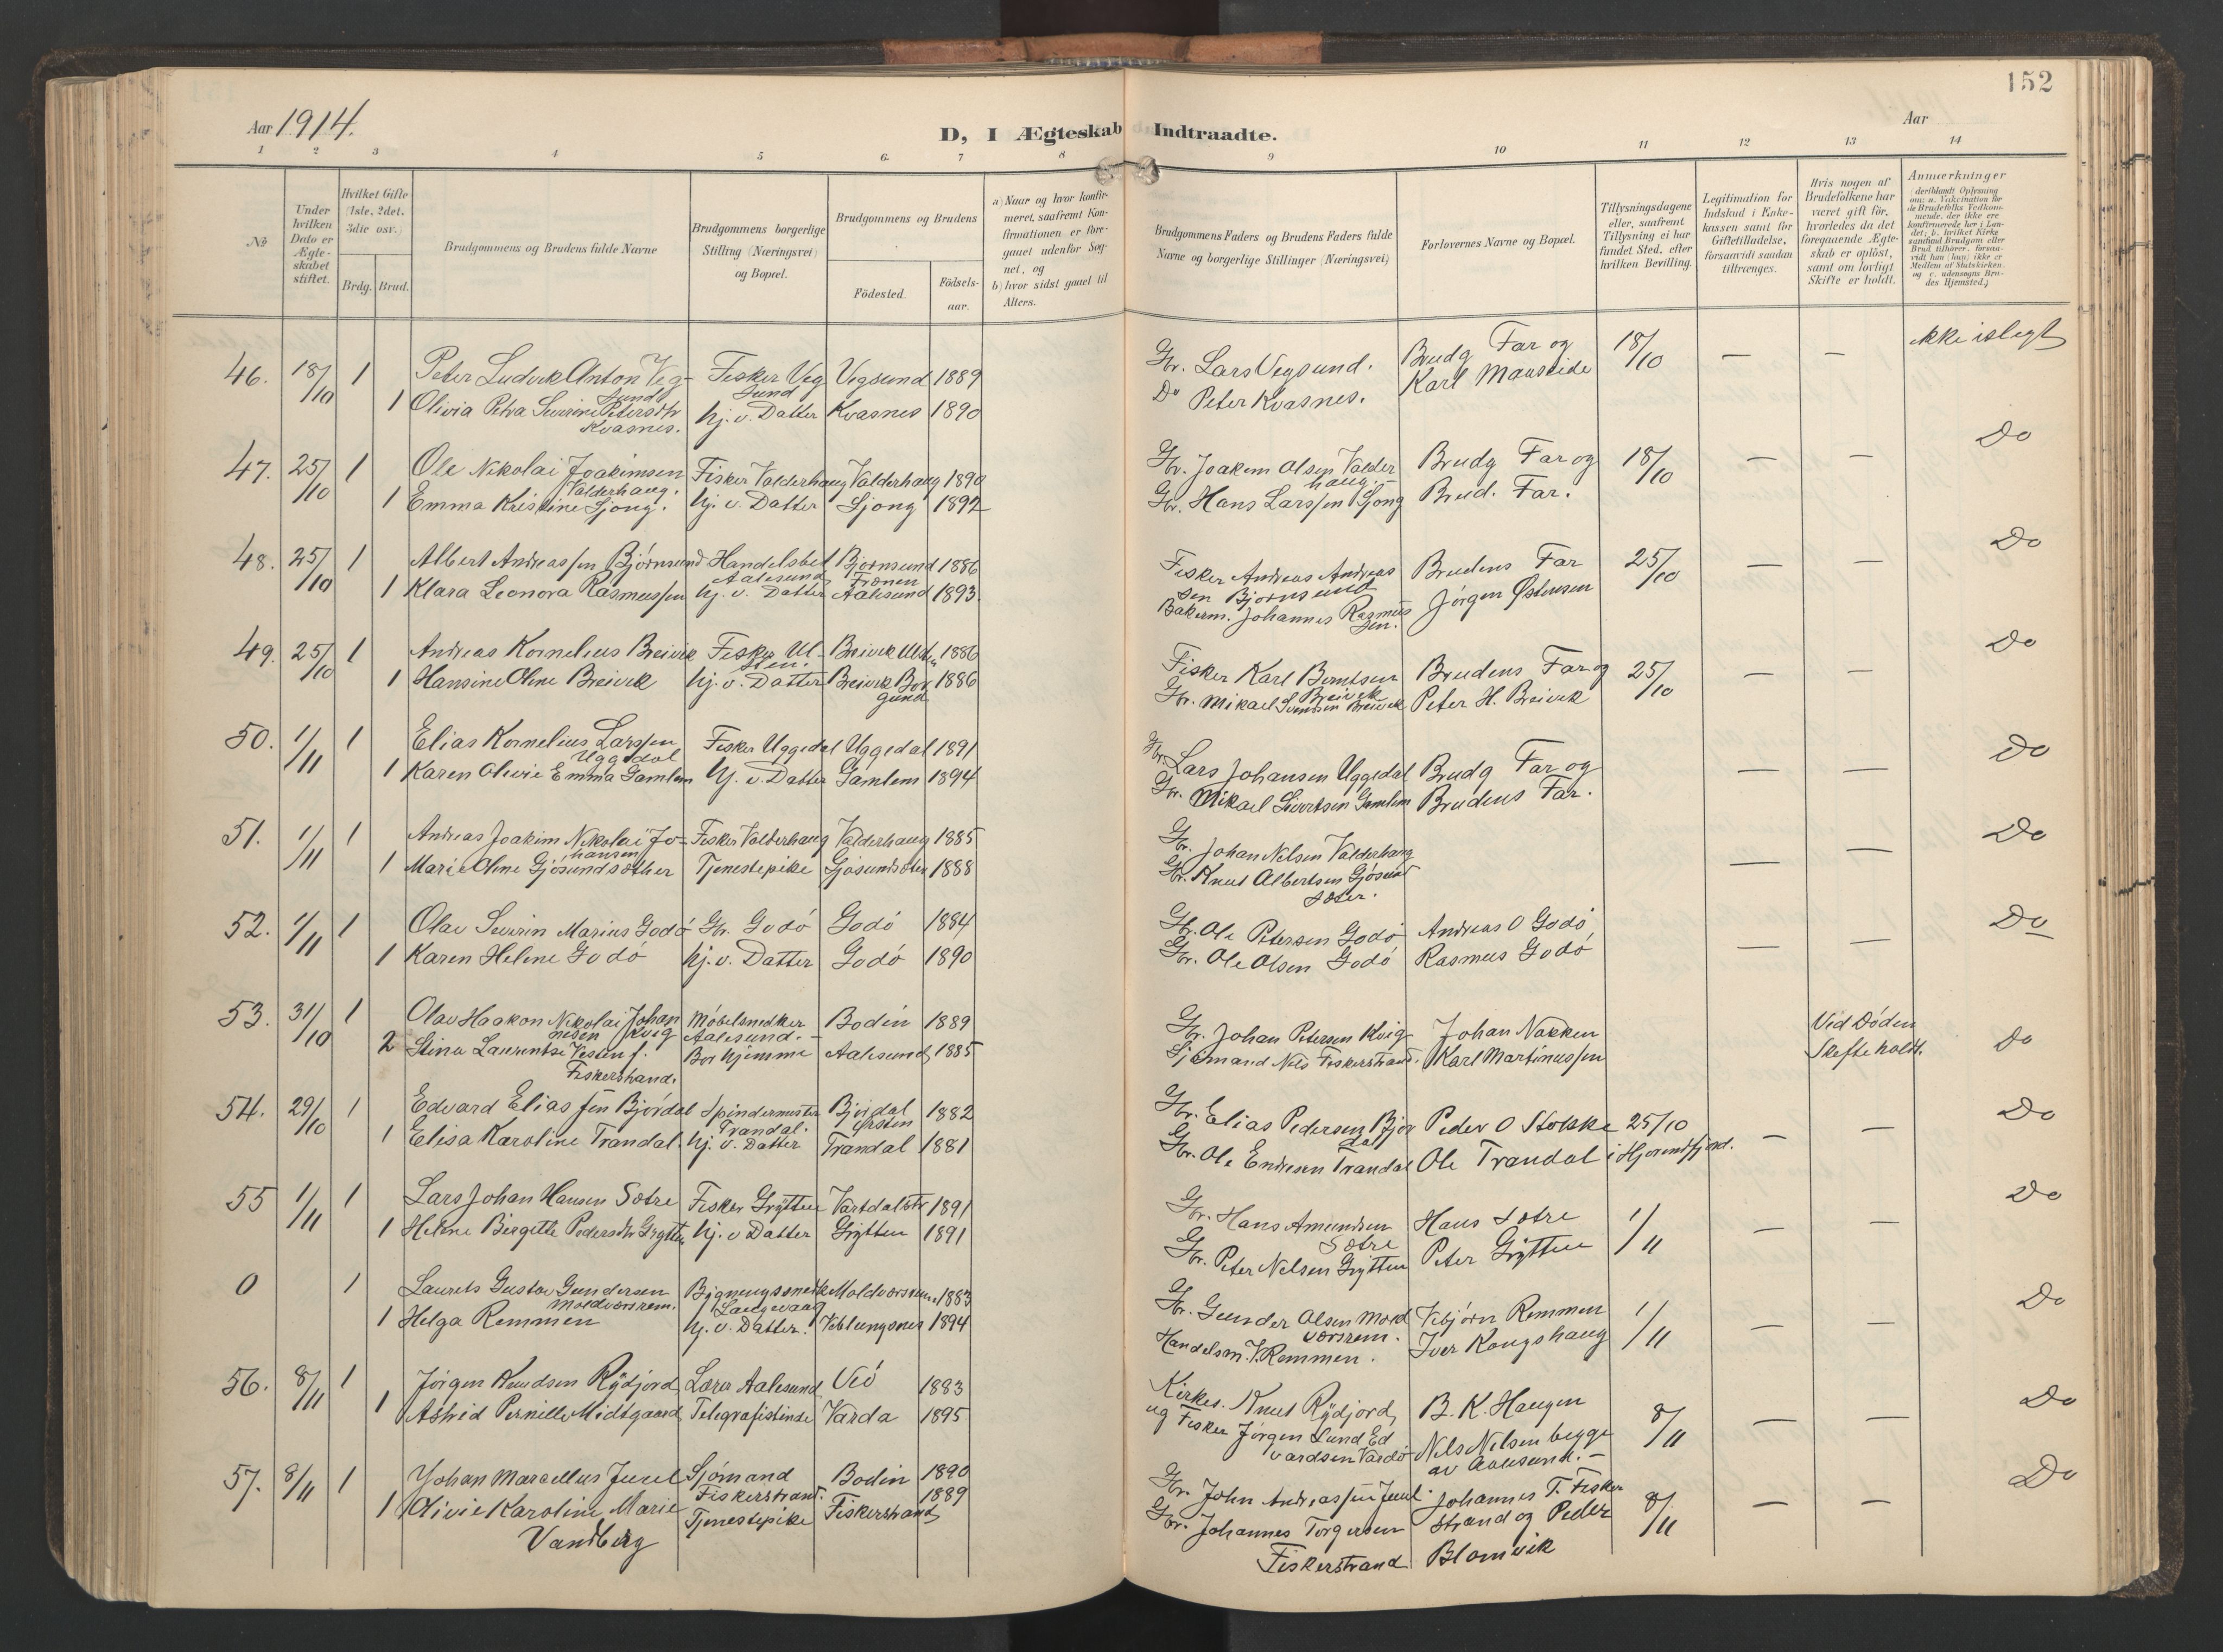 152
Aar 1914.
D, I Ægteskab Indtraadte.
Aar
1 2 3 4 5 6. 7 8 9 10 11 12 13 14
№
Under hvilken Dato er Ægteskabet stiftet.
Hvilket Gifte (1ste, 2det, 3die osv.)
Brdg. Brud.
Brudgommens og Brudens fulde Navne
Brudgommens borgerlige Stilling (Næringsvei) og Bopæl.
Brudgommens og Brudens
Fødested.
Fødselsaar.
a) Naar og hvor konfirmeret, saafremt Konfirmationen er foregaaet udenfor Sognet, og
b) hvor sidst gaaet til Alters.
Brudgommens Faders og Brudens Faders fulde Navne og borgerlige Stillinger (Næringsvei)
Forlovernes Navne og Bopæl.
Tillysningsdagene eller, saafremt Tillysning ei har fundet Sted, efter hvilken Bevilling.
Legitimation for Indskud i Enkekassen samt for Giftetilladelse, forsaavidt saadan tiltrænges.
Hvis nogen af Brudefolkene har været gift før, hvorledes da det foregaaende Ægteskab er opløst, samt om lovligt Skifte er holdt.
Anmerkninger
46. 18/10 1 Peter Ludvik Anton Veg- Fisker Veg Vegsund 1889 Gbr. Lars Vegsund. Brudg Far og 18/10 — — ikkeislegt
sund sund
1 Olivia Petra Severine Petersdtr hj. v. Datter Kvasnes 1890 Do Peter Kvasnes. Karl Mauseide
Kvasnes.
47. 25/10 1 Ole Nikolai Joakimsen Fisker Valderhaug Valderhaug 1890 Gbr. Joakim Olsen Valder Brudg Far og 18/10 — — Do
Valderhaug. haug.
1 Emma Kristine Gjong. hj. v. Datter Gjong 1892 Gbr. Hans Larssen Gjong Brud. Far.
48. 25/10 1 Albert Andreassen Bjørnsund Handelsbet Bjornsund 1886 Fisker Andreas Andreas Brudens Far 25/10 — — Do
Aalesund Frænen sen Bjornsund
1 Klara Leonora Rasmussen hj. v. Datter Aalesund 1893 Bakerm. Johannes Rasmus Jørgen Østensen
sen.
49. 25/10 1 Andreas Kornelius Breivik Fisker Ul- Breivik Ulsten 1886 Fisker Karl Berntsen Brudens Far og 25/10 — — Do
sten. Breivik
1 Hansine Oline Breivik hj. v. Datter Breivik Bor 1886 Gbr. Mikael Svendsen Breivik Peter H. Breivik
gund
50. 1/11 1 Elias Kornelius Larssen Fisker Uggedal Uggedal 1891 Gbr. Lars Johansen Uggedal Brudg Far og — — Do
Uggedal
1 Karen Olivie Emma Gamlem hj. v. Datter Gamlem 1894 Gbr. Mikael Sivertsen Gamlem Brudens Far.
51. 1/11 1 Andreas Joakim Nikolai Jo- Fisker Valderhaug Valderhaug 1885 Gbr. Johan Nilsen Valderhaug — — Do
hansen
1 Marie Oline Gjøsundsæther Tjenestepike Gjøsundsæter 1888 Gbr. Knut Albertsen Gjøsund
sæter.
52. 1/11 1 Olav Severin Marius Godø Gbr. Godø Godø 1884 Gbr. Ole Petersen Godø Andreas O Godø, — — Do
1 Karen Helene Godø hj. v. Datter Godø 1890 Gbr. Ole Olsen Godø Rasmus Godø
53. 31/10 1 Olav Haakon Nikolai Johan Møbelsnedker Bodin 1889 Gbr. Johan Petersen Kvig Johan Nakken Ved Døden Do
nesen Kvig Aalesund.
2 Stina Laurentse Vesten f. Bor hjemme Aalesund 1885 Sjømand Nils Fiskerstrand. Karl Martinussen Skifte holdt.
Fiskerstrand.
54. 29/10 1 Edvard Eliassen Bjørdal Spindemester Bjørdal 1882 Gbr. Elias Pedersen Bjør Peder O Stokke 25/10 — — Do
Trandal. Ørsten dal
1 Elisa Karoline Trandal. hj. v. Datter Trandal 1881 Gbr. Ole Endresen Trandal Ole Trandal i Hjørundfjord.
55 1/11 1 Lars Johan Hansen Sætre Fisker Grytten Vartdalstr 1891 Gbr. Hans Amundsen Hans Sætre 1/11 — — Do
Sætre
1 Helene Birgitte Pedersdtr Grytten hj. v Datter Grytten 1891 Gbr. Peter Nelsen Grytten Peter Grytten
0 1 Laurits Gustav Gundersen Bygningssnedk Moldværsrem. 1883 Gbr. Gunder Olsen Mold Vebjørn Remmen 1/11 — — Do
Moldværsrem. Langevaag værsrem.
1 Helga Remmen hj. v. Datter. Veblungsnes 1894 Handelsm. V. Remmen. Iver Kongshaug
56. 8/11 1 Jørgen Knudsen Rydjord, Lærer Aalesund Veø 1883 Kirkes. Knut Rydjord, B. K. Haugen 8/11 — — Do
1 Astrid Pernille Midtgaard, Telegrafistinde Vardø 1895 og Fisker Jørgen Lund Ed Nils Nilsen begge
vardsen Vardø av Aalesund.
57. 8/11 1 Johan Marcellus Juul Sjømand Bodin 1890 Gbr. John Andreassen Juul. Johannes T. Fisker 8/11 — — Do
Fiskerstrand. 1889
1 Olivie Karoline Marie Tjenestepike Fiskerstrand Gbr. Johannes Torgersen strand og Peder
Vandberg Fiskerstrand Blomvik